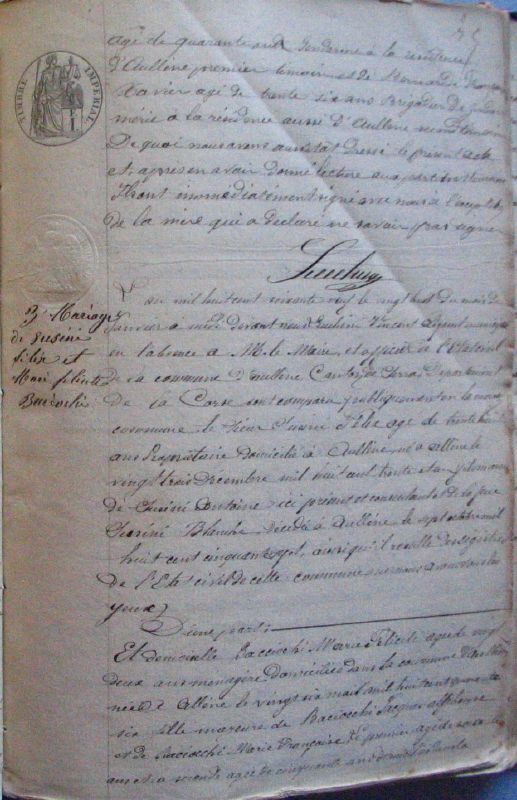 TIMBRE IMPERIAL
âgé de quarante ans Gendarme à la résidence
d'Aullène premier témoin et de Bernardi François
Xavier agé de trente six ans Brigadier de gendar
merie à la résidence aussi d'Aullene
De quoi nous avons aussitôt dressé le présent acte
et après en avoir donné lecture aux parties et témoins
Ils ont immédiatement signé avec nous à l'exception
de la mère qui a déclaré ne savoir pas signer
3 Mariage
de Susini
Félix et
Marie félicité
Bacciochi
L'an mil huit cent soixante neuf le vingt huit du mois de
Janvier à midi Devant nous Vincent adjoint
en l'absence de M. le Maire, et officier de l'état civil
de la commune d'Aullène Canton de Serra Département
de la Corse sont comparu publiquement en la maison
commune le Sieur Susini Félix age de trente huit
ans Propriétaire domicilié à Aullène né à Allène le
vingt trois Decembre mil huit cent trente et
de Susini Antoine ici présent et consentant et de feue
Susini Blanche décédée à Aullène le sept octobre mil
huit cent cinquante ainsi qu'il resulte des registres
de l'Etat civil de cette commune que nous avons sous les
yeux
D'une part;
Et demoiselle Bacciochi Marie Félicité agée de vingt
deux ans ménagère domiciliée dans la commune d'Aullène
née à Allène le vingt six mai mil huit cent quarante
six fille mineure de Baciocchi Jacques Alphonse
et de Bacciocchi Marie Françoise le premier agé de
ans et la seconde agée de cinquante ans